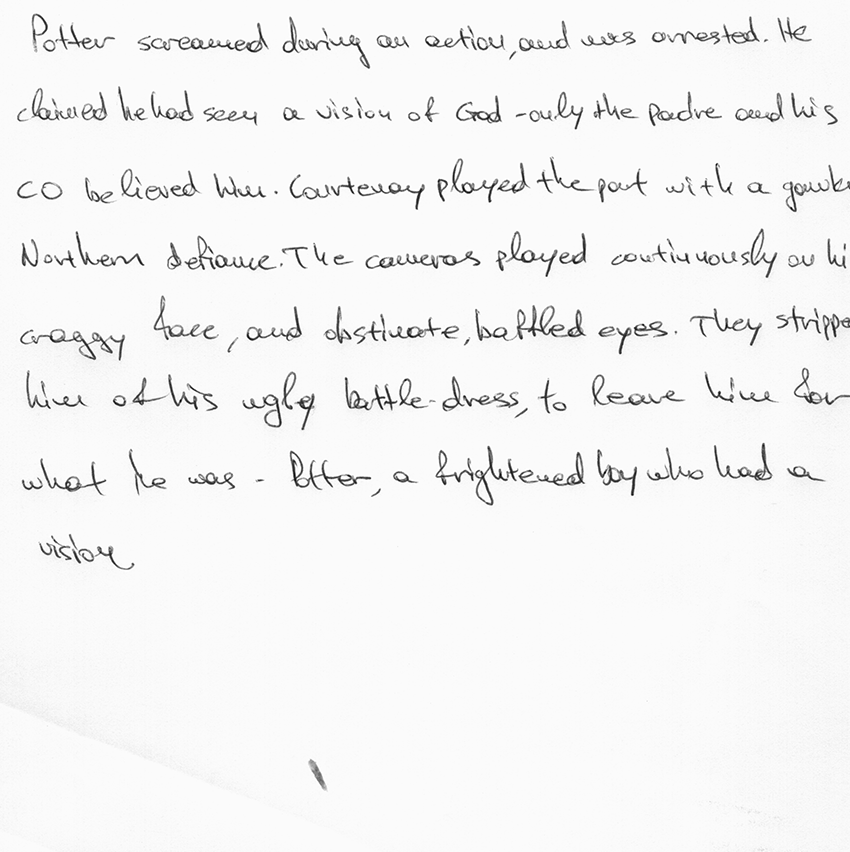 Potter screamed during an action, and was arrested. He
claimed he had seen a vision of God - only the padre and his
CO believed him. Courtenay played the part with a gawk
Northern defiance. The cameras played continuously on hi
craggy face, and obstinate, baffled eyes. They strippe
him of his ugly battle-dress, to leave him for
what he was - Potter, a frightened boy who had a
vision.